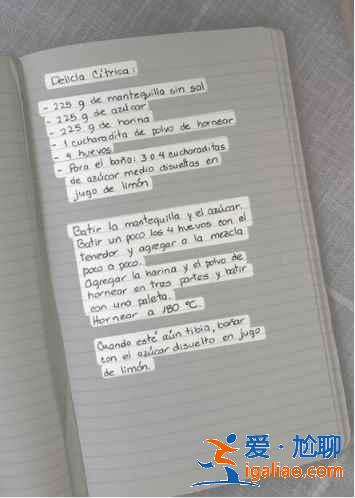 Delicia Cítrica:
- 225 g de mantequilla sin sal
- 225 g de azúcar
- 225 g de harina
- 1 cucharadita de polvo de hornear
- 4 huevos
- Para el baño: 3 o 4 cucharaditas
de azúcar medio disueltas en
jugo de limón
Batir la mantequilla y el azúcar.
Batir un poco los 4 huevos con el
tenedor y agregar a la mezcla
poco a poco.
Agregar la harina y el polvo de
hornear en tres partes y batir
con una paleta.
Hornear a 180 °C.
Cuando esté aún tibia, bañar
con el azúcar disuelto en jugo
de limón.
爱·尬聊
igaliao.com